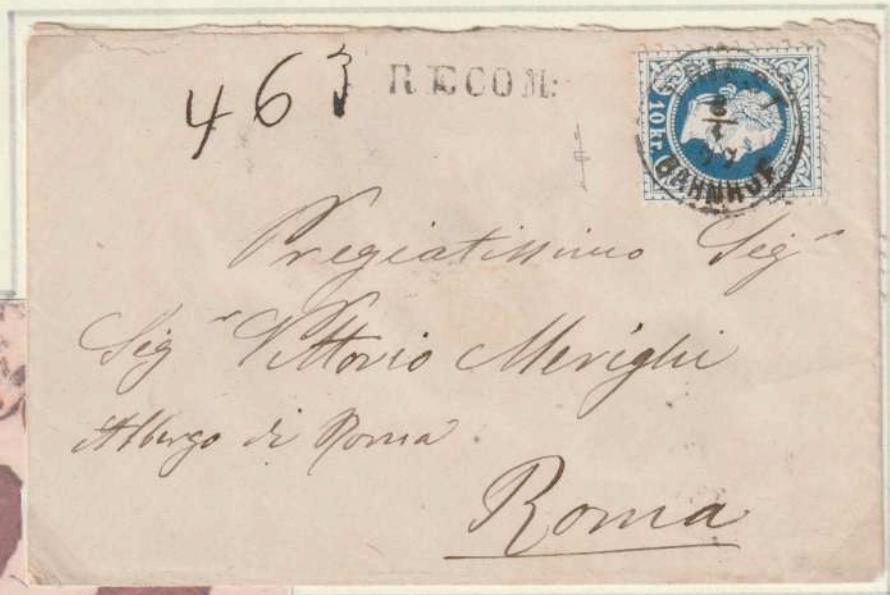 463 RECOM:
10 kr.
BAHNHOF
Pregiatissimo Sigr
Sigr Vittorio Merighi
Albergo di Roma
Roma